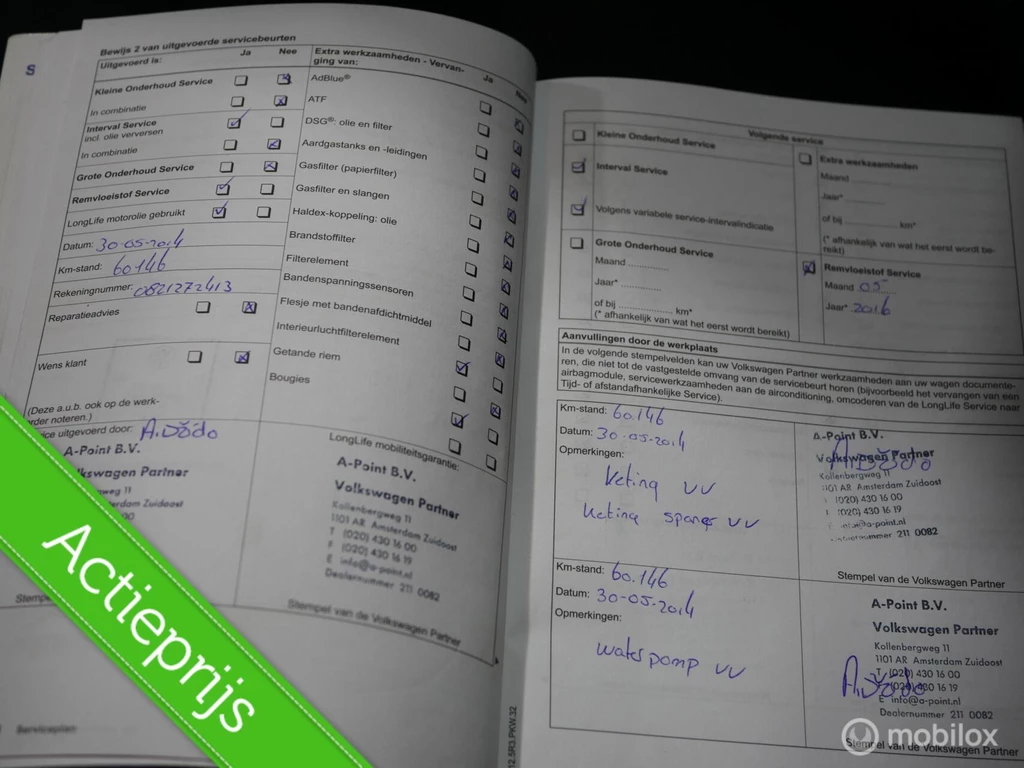 S
Bewijs 2 van uitgevoerde servicebeurten
Uitgevoerd is:
Ja
Nee
Kleine Onderhoud Service
In combinatie
Interval Service
incl. olie verversen
In combinatie
Grote Onderhoud Service
Remvloeistof Service
LongLife motorolie gebruikt
Datum: 30-05-2014
Km-stand: 60.146
Rekeningnummer: 0821272413
Reparatieadvies
Wens klant
(Deze a.u.b. ook op de werk-
rder noteren.)
ice uitgevoerd door:
A-Point B.V.
lkswagen Partner
weg 11
erdam Zuidoost
00
Stempel
Serviceplan
Extra werkzaamheden - Vervan-
ging van:
Ja
Nee
AdBlue®
ATF
DSG®: olie en filter
Aardgastanks en -leidingen
Gasfilter (papierfilter)
Gasfilter en slangen
Haldex-koppeling: olie
Brandstoffilter
Filterelement
Bandenspanningssensoren
Flesje met bandenafdichtmiddel
Interieurluchtfilterelement
Getande riem
Bougies
LongLife mobiliteitsgarantie:
A-Point B.V.
Volkswagen Partner
Kollenbergweg 11
1101 AR Amsterdam Zuidoost
T (020) 430 16 00
F (020) 430 16 19
E info@a-point.nl
Dealernummer 211 0082
Stempel van de Volkswagen Partner
12.5R3.PKW.32
Volgende service
Kleine Onderhoud Service
Interval Service
Volgens variabele service-intervalindicatie
Grote Onderhoud Service
Maand ..............
Jaar* ..............
of bij .................. km*
(* afhankelijk van wat het eerst wordt bereikt)
Extra werkzaamheden
Maand ..............
Jaar* ..............
of bij .................. km*
(* afhankelijk van wat het eerst wordt be-
reikt)
Remvloeistof Service
Maand 05
Jaar* 2016
Aanvullingen door de werkplaats
In de volgende stempelvelden kan uw Volkswagen Partner werkzaamheden aan uw wagen documente-
ren, die niet tot de vastgestelde omvang van de servicebeurt horen (bijvoorbeeld het vervangen van een
airbagmodule, servicewerkzaamheden aan de airconditioning, omcoderen van de LongLife Service naar
Tijd- of afstandafhankelijke Service).
Km-stand: 60.146
Datum: 30-05-2014
Opmerkingen:
Keting vv
Keting spaner vv
A-Point B.V.
Volkswagen Partner
Kollenbergweg 11
1101 AR Amsterdam Zuidoost
(020) 430 16 00
(020) 430 16 19
info@a-point.nl
Dealernummer 211 0082
Stempel van de Volkswagen Partner
Km-stand: 60.146
Datum: 30-05-2014
Opmerkingen:
waterpomp vv
A-Point B.V.
Volkswagen Partner
Kollenbergweg 11
1101 AR Amsterdam Zuidoost
T (020) 430 16 00
(020) 430 16 19
E info@a-point.nl
Dealernummer 211 0082
Stempel van de Volkswagen Partner
Actieprijs
mobilox